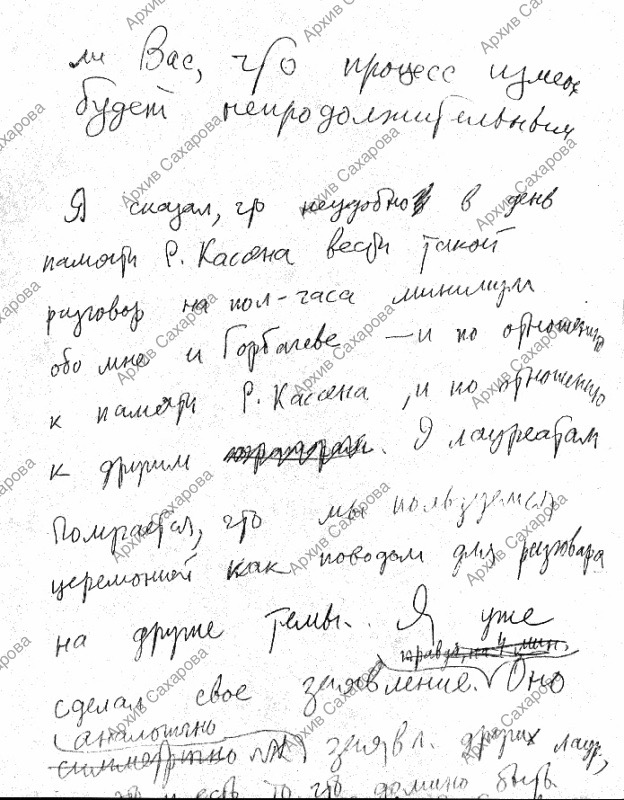 ли Вас, что процесс
будет непродолжительным
Я сказал, что неудобно в день
памяти Р. Кассена вести такой
разговор на пол-часа минимум
обо мне и Горбачеве — и по отношению
к памяти Р. Кассена, и по отношению
к другим лауреатам
Получается, что мы пользуемся
церемонией как поводом для разговора
на другие темы. Я уже
правда, на 4 мин.
сделал свое заявление. Оно
аналогично
симметрично заявл. других лаур,
и есть то что должно быть
Архив Сахарова